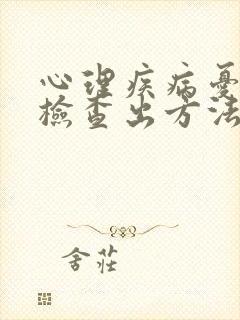 心理疾病憂
檢查出方法
舍莊